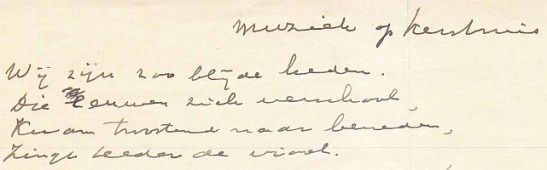 Muziek op kersthuis
Wij zijn zoo blijde heden.
Die eeuwen zich verschool,
Kwam troostend naar beneden,
Zingt teeder de viool.